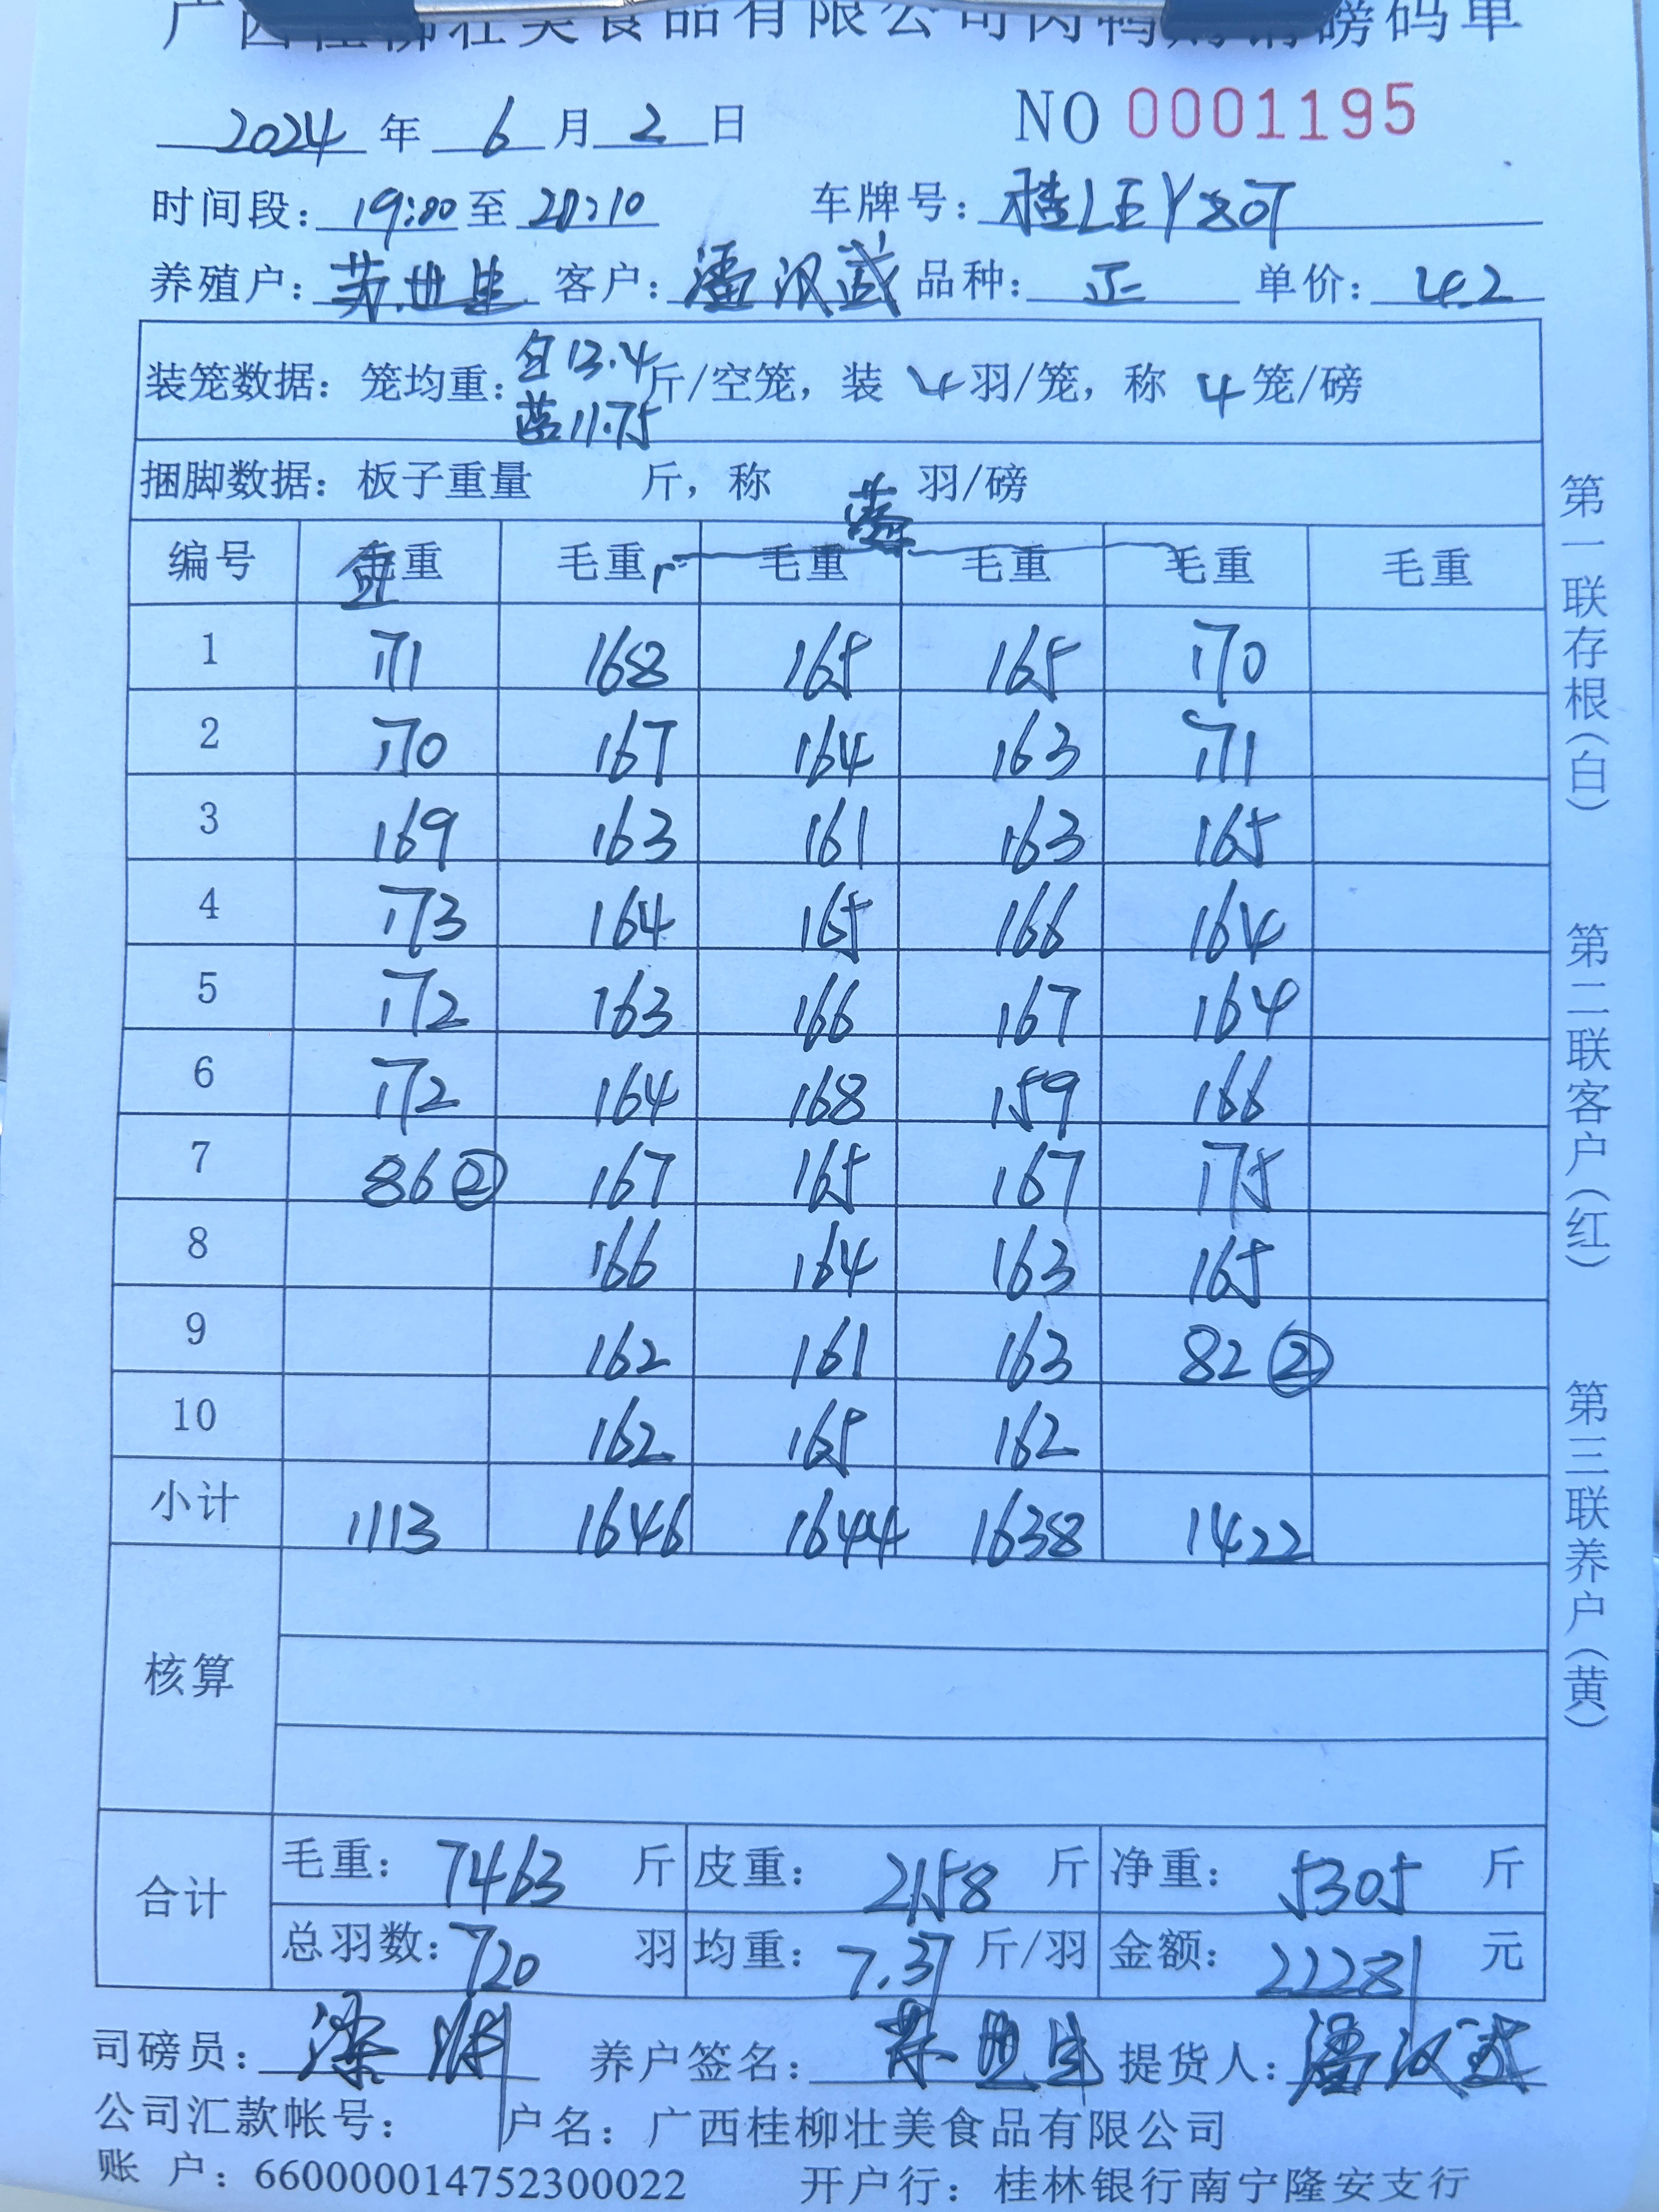 广西桂柳壮美食品有限公司肉鸭购销磅码单
2024 年 6 月 2 日 NO 0001195
时间段: 19:00 至 20:10 车牌号: 桂LEY807
养殖户: 苏世生 客户: 潘汉武 品种: 正 单价: 4.2
装笼数据: 笼均重: 白13.4 蓝11.75 斤/空笼, 装 4 羽/笼, 称 4 笼/磅
捆脚数据: 板子重量 斤, 称 羽/磅
白 蓝
编号 毛重 毛重 毛重 毛重 毛重 毛重
1 171 168 165 165 170
2 170 167 164 163 171
3 169 163 161 163 165
4 173 164 165 166 164
5 172 163 166 167 164
6 172 164 168 159 166
7 86② 167 165 167 175
8 166 164 163 165
9 162 161 163 82②
10 162 165 162
小计 1113 1646 1644 1638 1422
核算
合计 毛重: 7463 斤 皮重: 2158 斤 净重: 5305 斤
总羽数: 720 羽 均重: 7.37 斤/羽 金额: 22281 元
司磅员: 养户签名: 苏世生 提货人: 潘汉武
公司汇款帐号: 户名: 广西桂柳壮美食品有限公司
账 户: 660000014752300022 开户行: 桂林银行南宁隆安支行
第一联存根(白) 第二联客户(红) 第三联养户(黄)